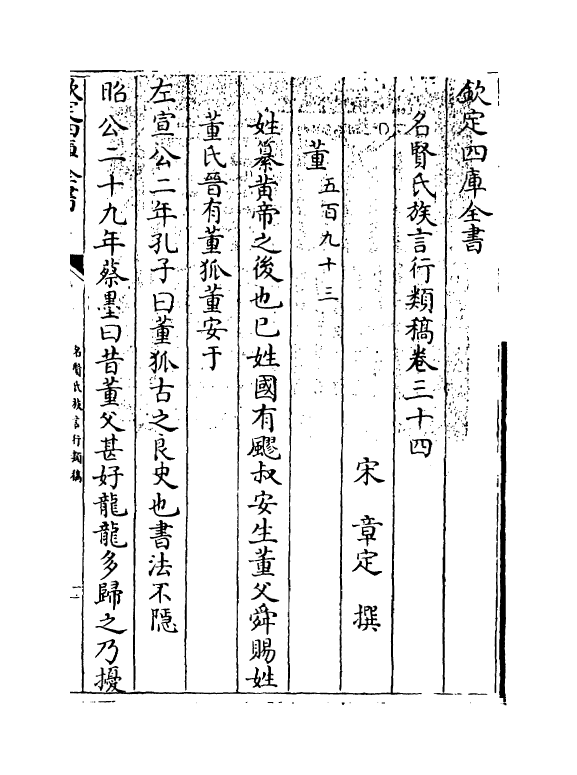 欽定四庫全書
名賢氏族言行類稿卷三十四
宋 章定 撰
董 五百九十三
姓纂黄帝之後也巳姓國有飂叔安生董父舜賜姓
董氏晉有董狐董安于
左宣公二年孔子曰董狐古之良史也書法不隱
昭公二十九年蔡墨曰昔董父甚好龍龍多歸之乃擾
欽定四庫全書
名賢氏族言行類稿